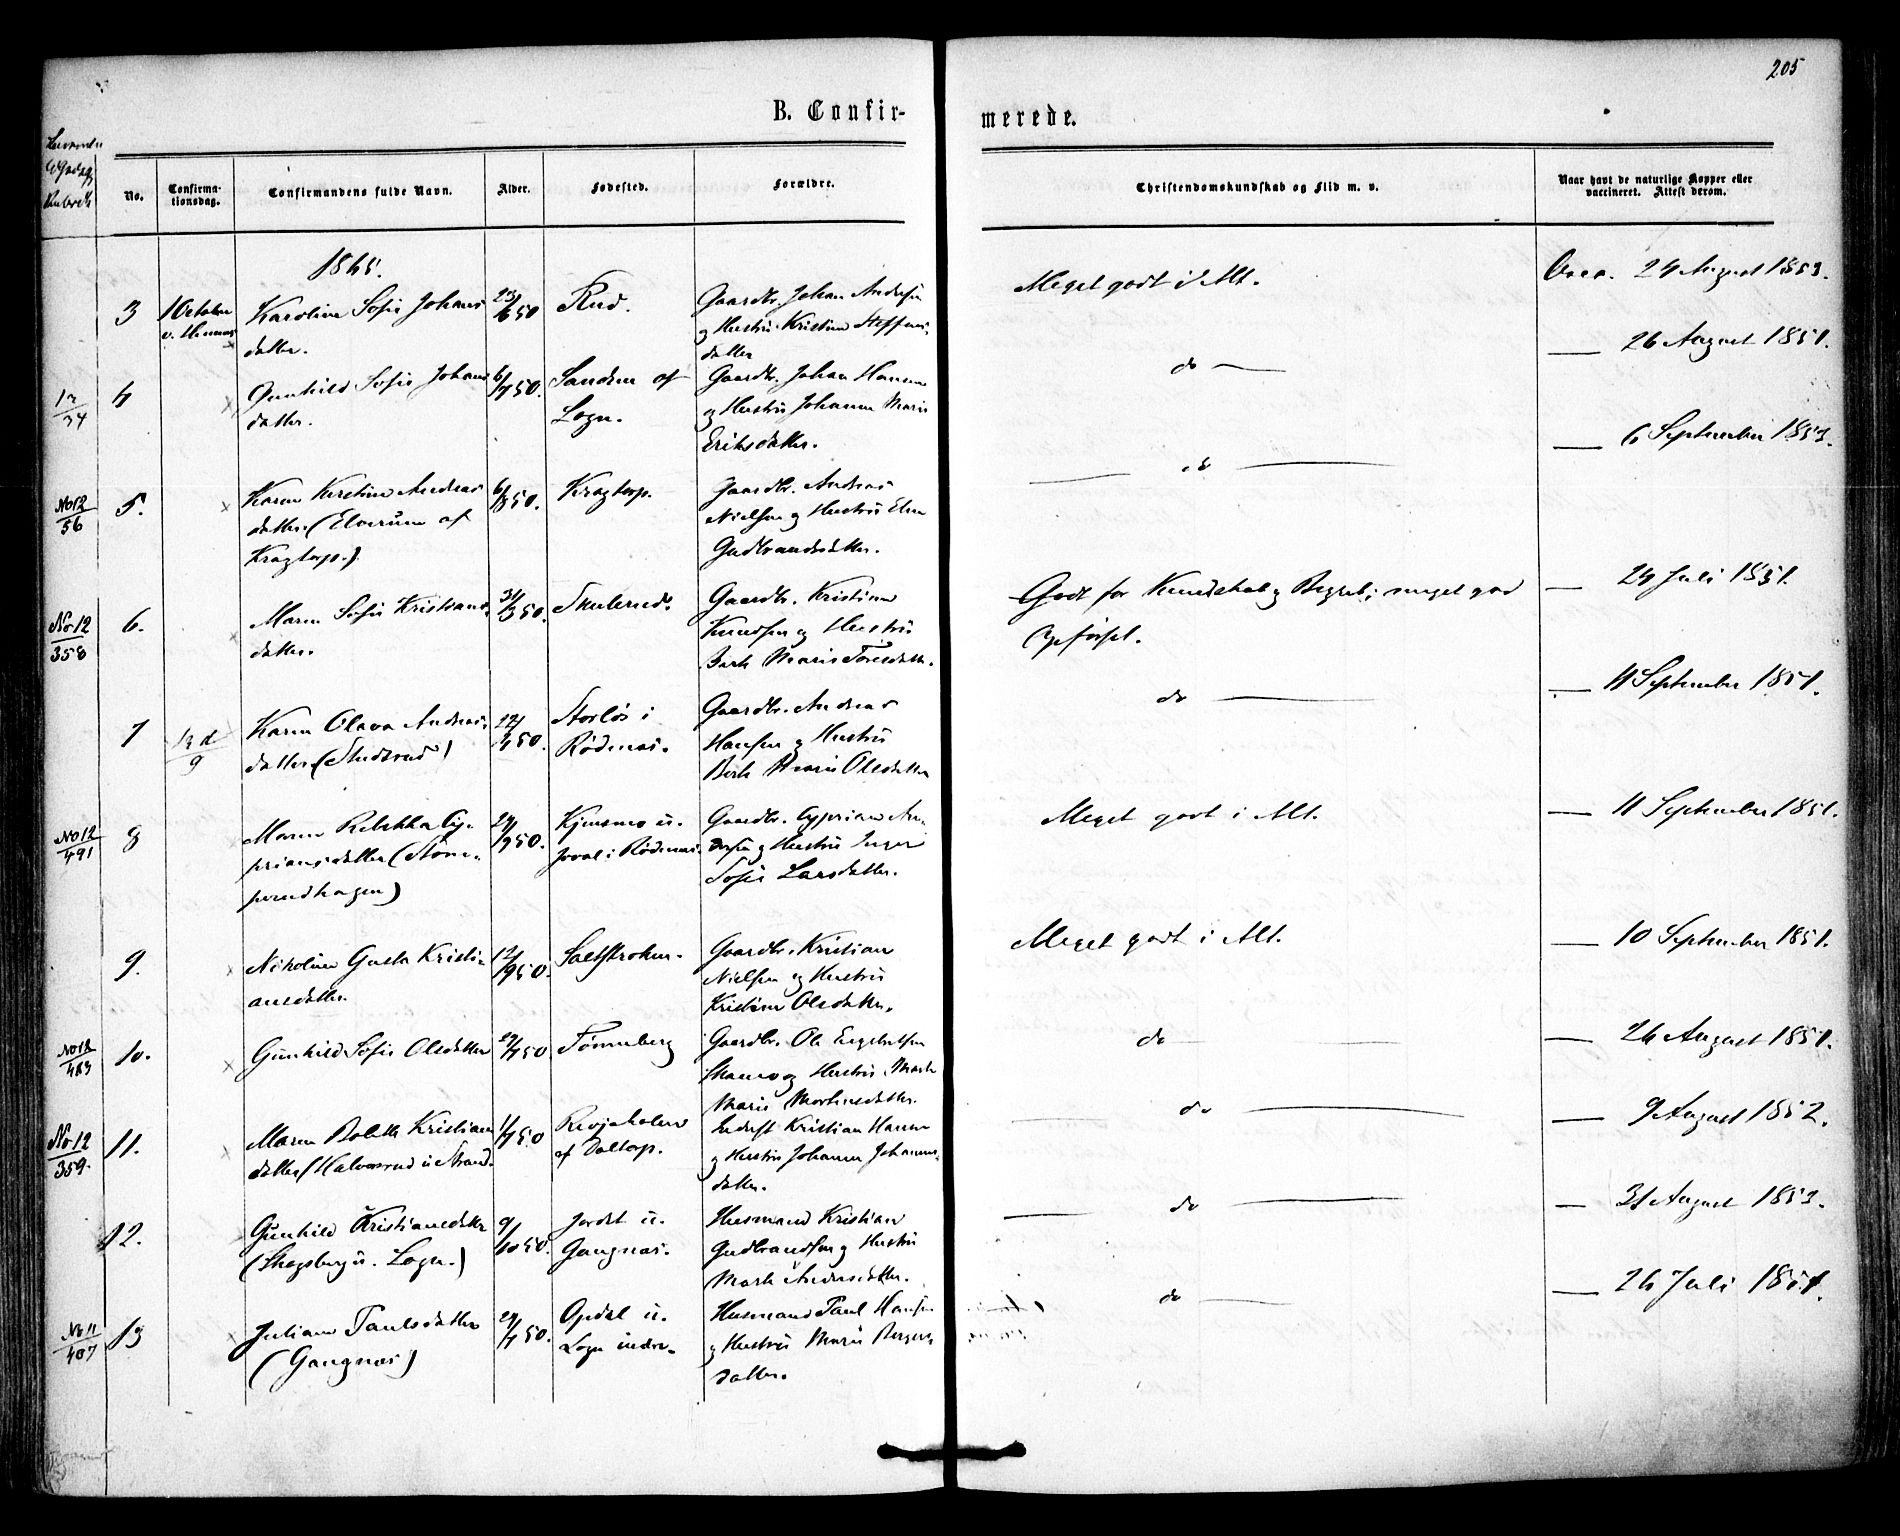 205
B. Confir-
merede.
No.
Confirma-
tionsdag.
Confirmandens fulde Navn.
Alder.
Fødested.
Forældre.
Christendomskundskab og Flid m. v.
Naar havt de naturlige Kopper eller
vaccineret. Attest derom.
1865.
3
1 October
Karoline Sofie Johans
datter.
23/6 50
Rud.
Gaardbr. Johan Andersen
og Hustru Kristine Steffens
datter
Meget godt i Alt.
Vacc. 24 August 1853.
12/34
4
Gunhild Sofie Johans
datter.
6/7 50.
Sanden af
Logn.
Gaardbr. Johan Hansen
og Hustru Johanne Marie
Eriksdatter.
do
26 August 1851.
No 12/56
5.
Karen Kirstine Andreas
datter. (Elverum af
Kragtorp.)
6/8 50.
Kragtorp.
Gaardbr. Andreas
Nielsen og Hustru Elen
Gudbrandsdatter.
do
6 September 1853.
No 12/358
6.
Maren Sofie Kristians
datter.
31/3 50.
Skulerud.
Gaardbr. Kristian
Knudsen og Hustru
Berte Marie Toresdatter.
Godt for Kundskab og Begreb; meget god
Opførsel.
24 Juli 1851.
7
12 d/9
Karen Olava Andreas
datter (Studsrud)
Storløs i
Rødenes.
Gaardbr. Andreas
Hansen og Hustru
Berte Marie Olsdatter
do
11 September 1851.
No 12/491
8
Maren Rebekka Cy-
priansdatter
29/9 50.
i Rødenes.
Gaardbr. Cyprian An-
dersen og Hustru Inger
Sofie Larsdatter.
Meget godt i Alt.
11 September 1851.
9.
Nikoline Gusta Kristi-
ansdatter.
12/9 50.
Gaardbr. Kristian
Nielsen og Hustru
Kristine Olsdatter.
Meget godt i Alt.
10 September 1851.
No 12/483
10.
Gunhild Sofie Olsdatter
29/7 50.
Tønneberg
Gaardbr. Ole Engebretsen
og Hustru Marte
Marie Mortensdatter.
do
26 August 1851.
No 12/359.
11.
Maren Bolette Kristians
datter (Halvorsrud u. Strand.
1/7 50
af Daltorp.
Inderst Kristian Hansen
og Hustru Johanne Johannes
datter.
do
9 August 1852.
12.
Gunhild Kristiansdatter
(Skogsberg u. Logn.)
9/10 50.
Jordet u.
Gangnæs.
Husmand Kristian
Gudbrandsen og Hustru
Marte Andersdatter.
do
31 August 1853.
No 11/407
13
Juliane Paulsdatter
(Gangnæs)
29/7 50.
Opdal u.
Logn indre.
Husmand Paul Hansen
og Hustru Marie Bergers
datter.
do
26 Juli 1851.